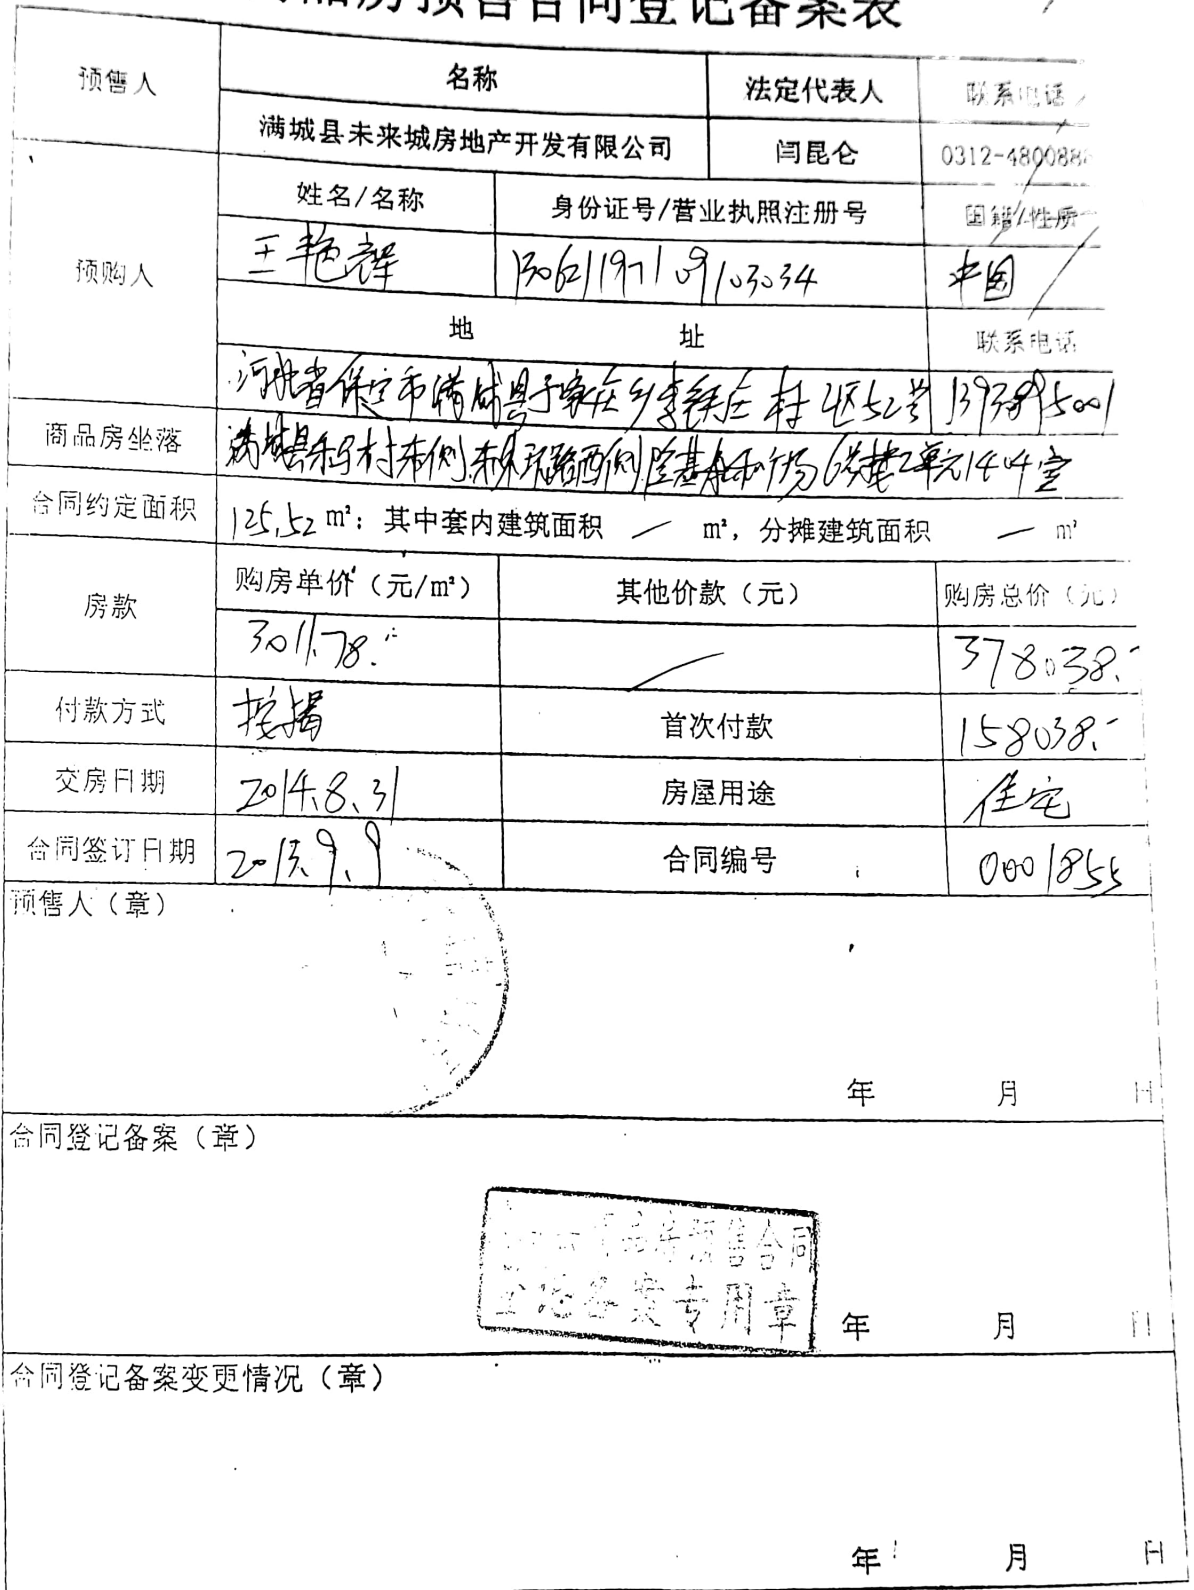 商品房预售合同登记备案表
预售人 名称 法定代表人 联系电话
满城县未来城房地产开发有限公司 闫昆仑 0312-480088
预购人 姓名/名称 身份证号/营业执照注册号 国籍/性质
王艳辉 130621197109103034 中国
地 址 联系电话
河北省保定市满城县于家庄乡李铁庄村4区52号
商品房坐落 满城县 村东侧未来环路西侧 2单元1404室
合同约定面积 125.52 m²; 其中套内建筑面积 — m², 分摊建筑面积 — m²
房款 购房单价（元/m²） 其他价款（元） 购房总价（元）
3011.78. 378038.-
付款方式 按揭 首次付款 158038.-
交房日期 2014.8.31 房屋用途 住宅
合同签订日期 2013.9.9 合同编号 0001855
预售人（章）
年 月 日
合同登记备案（章）
商品房预售合同
登记备案专用章
年 月 日
合同登记备案变更情况（章）
年 月 日